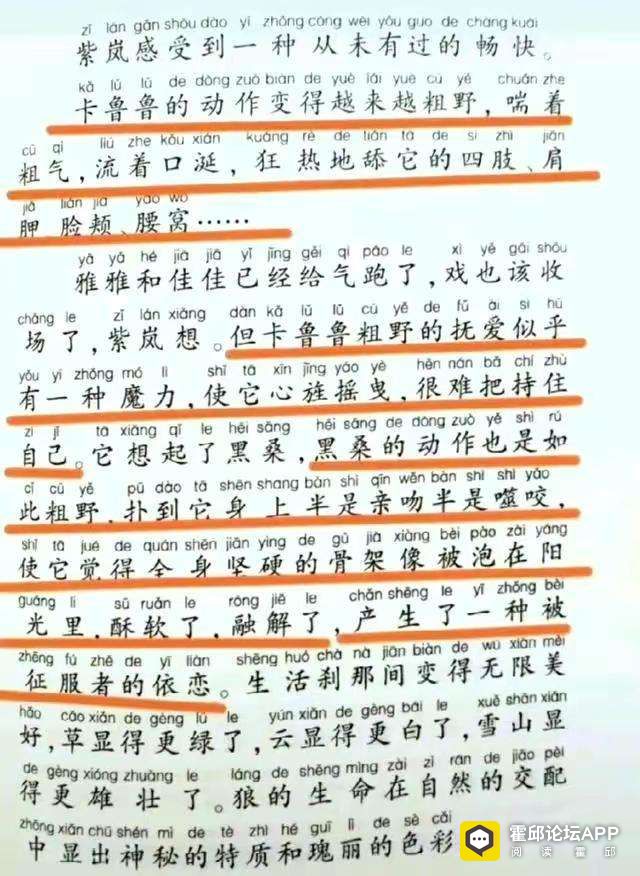 zǐ lán gǎn shòu dào yì zhǒng cóng wèi yǒu guo de chàng kuài
紫岚感受到一种从未有过的畅快。
kǎ lǔ lǔ de dòng zuò biàn de yuè lái yuè cū yě chuǎn zhe
卡鲁鲁的动作变得越来越粗野，喘着
cū qì liú zhe kǒu xián kuáng rè de tiǎn tā de sì zhī jiān
粗气，流着口涎，狂热地舔它的四肢、肩
jiǎ liǎn jiá yāo wō
胛、脸颊、腰窝……
yǎ yǎ hé jiā jiā yǐ jīng gěi qì pǎo le xì yě gāi shōu
雅雅和佳佳已经给气跑了，戏也该收
chǎng le zǐ lán xiǎng dàn kǎ lǔ lǔ cū yě de fǔ ài sì hū
场了，紫岚想。但卡鲁鲁粗野的抚爱似乎
yǒu yì zhǒng mó lì shǐ tā xīn jīng yáo yè hěn nán bǎ chí zhù
有一种魔力，使它心旌摇曳，很难把持住
zì jǐ tā xiǎng qǐ le hēi sāng hēi sāng de dòng zuò yě shì rú
自己。它想起了黑桑，黑桑的动作也是如
cǐ cū yě pū dào tā shēn shang bàn shì qīn wěn bàn shì shì yǎo
此粗野，扑到它身上半是亲吻半是噬咬，
shǐ tā jué de quán shēn jiān yìng de gǔ jià xiàng bèi pào zài yáng
使它觉得全身坚硬的骨架像被泡在阳
guāng li sū ruǎn le róng jiě le chǎn shēng le yì zhǒng bèi
光里，酥软了，融解了，产生了一种被
zhēng fú zhě de yī liàn shēng huó chà nà jiān biàn de wú xiàn měi
征服者的依恋。生活刹那间变得无限美
hǎo cǎo xiǎn de gèng lǜ le yún xiǎn de gèng bái le xuě shān xiǎn
好，草显得更绿了，云显得更白了，雪山显
de gèng xióng zhuàng le láng de shēng mìng zài zì rán de jiāo pèi
得更雄壮了。狼的生命在自然的交配
zhōng xiǎn chū shén mì de tè zhì hé guī lì de sè cǎi
中显出神秘的特质和瑰丽的色彩
霍邱论坛APP
阅读霍邱